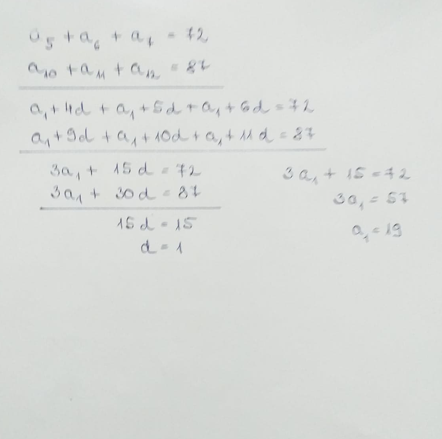 a₅ + a₆ + a₇ = 72
a₁₀ + a₁₁ + a₁₂ = 87
a₁ + 4d + a₁ + 5d + a₁ + 6d = 72
a₁ + 9d + a₁ + 10d + a₁ + 11d = 87
3a₁ + 15d = 72
3a₁ + 30d = 87
15d = 15
d = 1
3a₁ + 15 = 72
3a₁ = 57
a₁ = 19